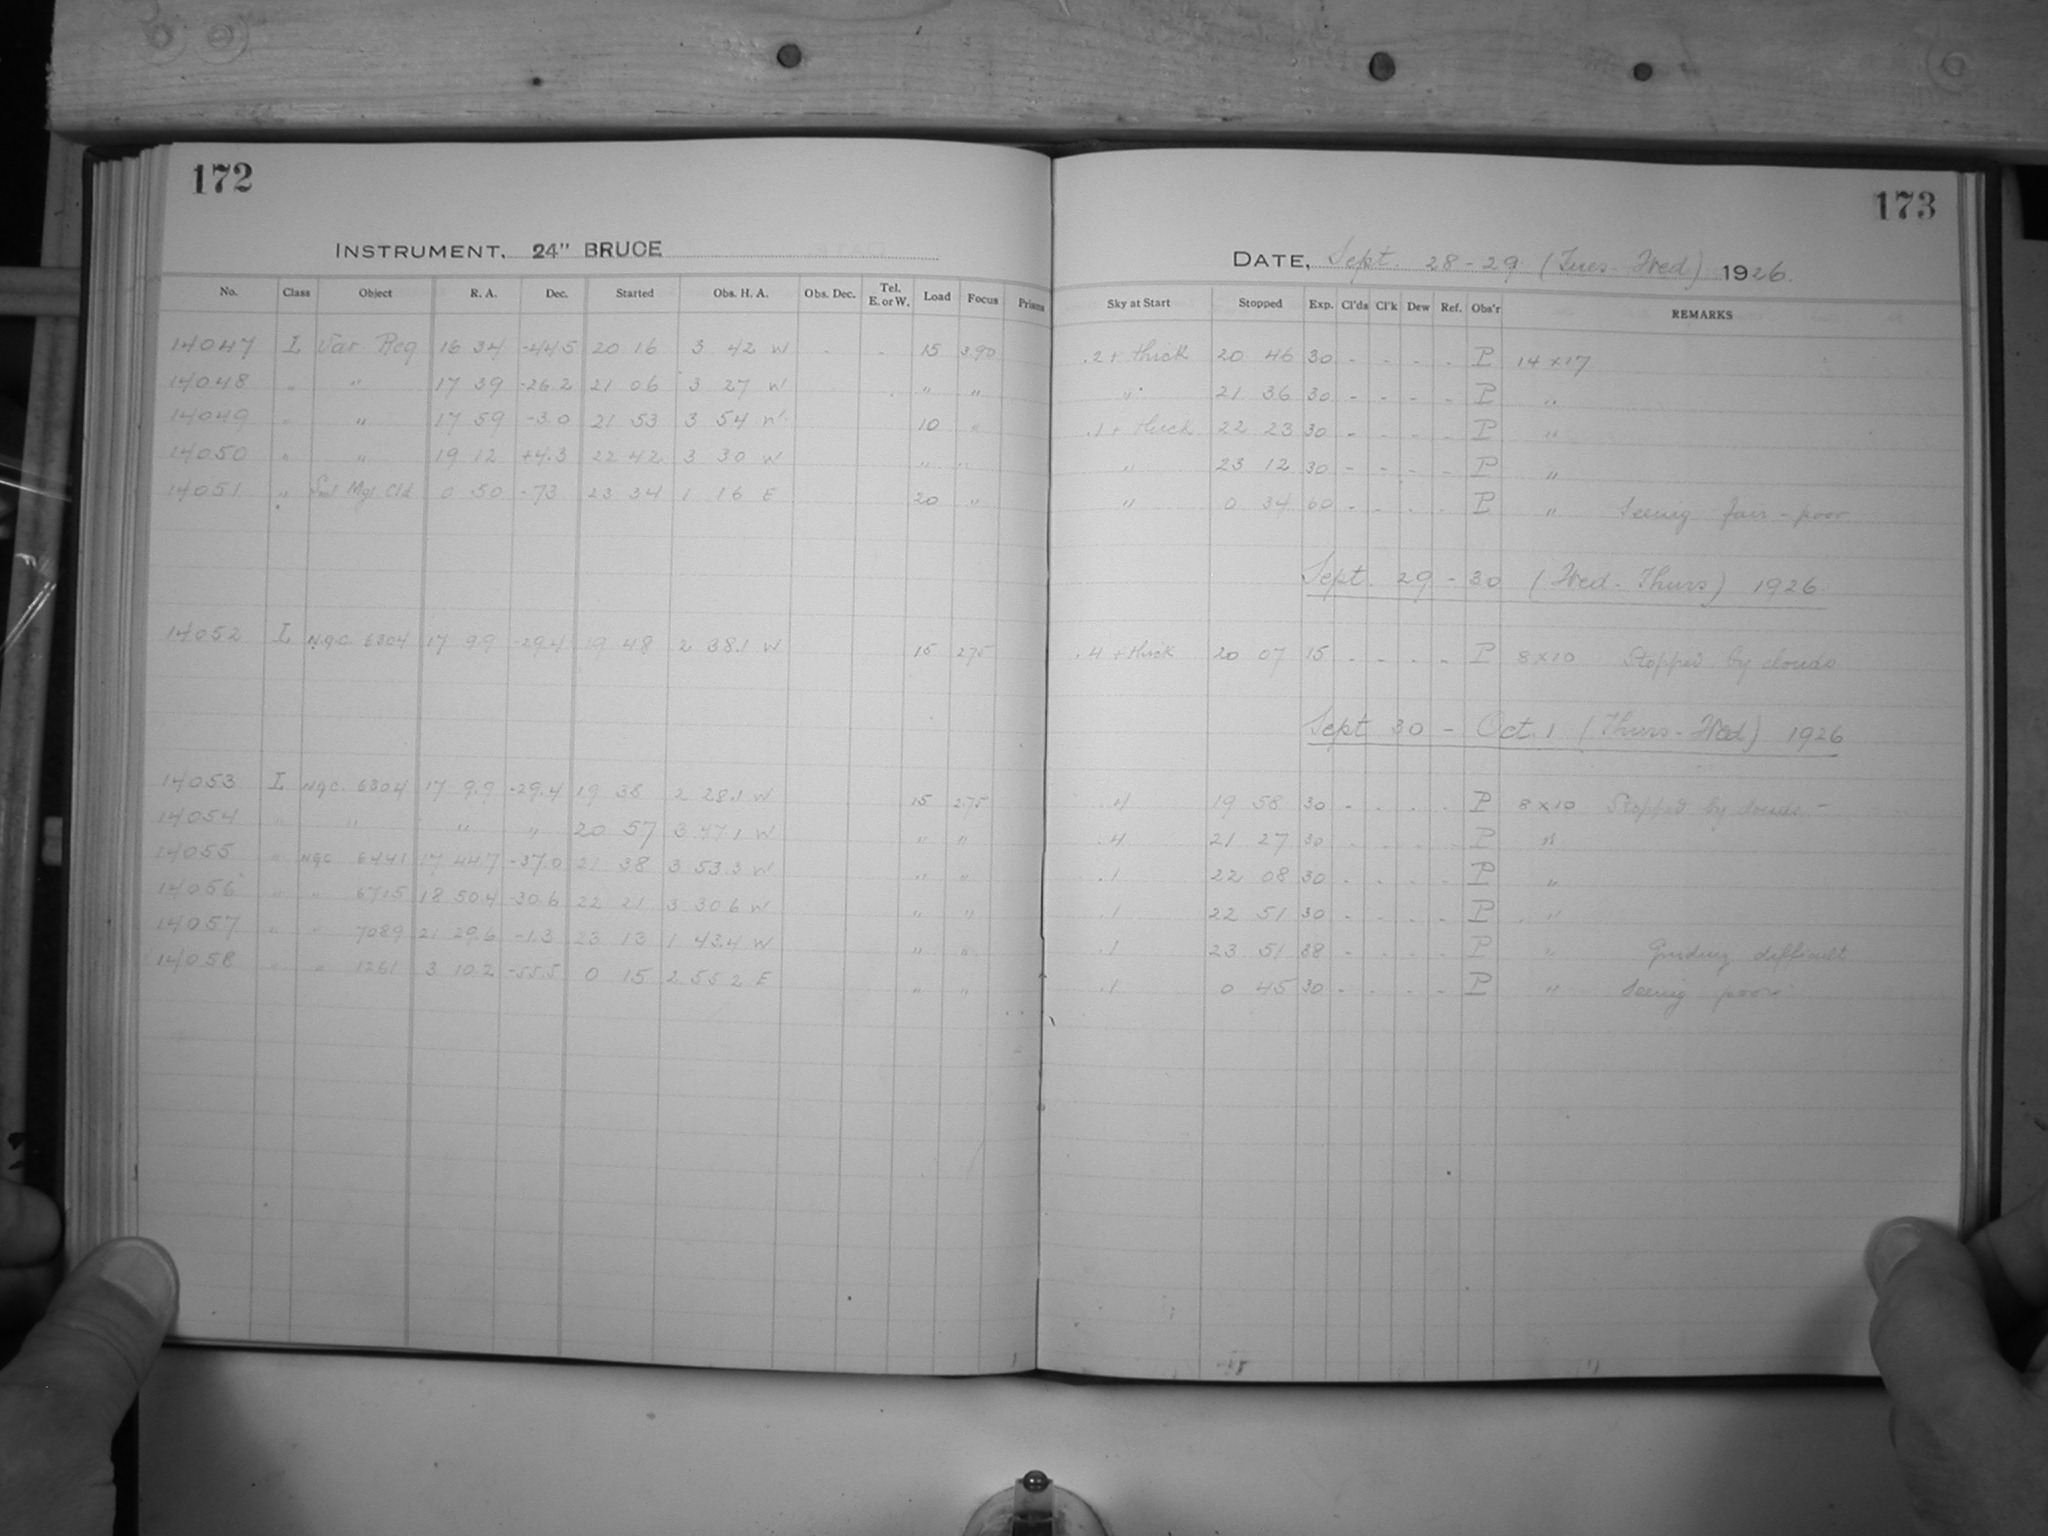 172
INSTRUMENT. 24" BRUCE
No. Class Object R. A. Dec. Started Obs. H. A. Obs. Dec. Tel. E. or W. Load Focus Prisms
14047 I Var. Reg 16 34 -44.5 20 16 3 42 W - - 15 3.90
14048 " " 17 39 -26.2 21 06 3 27 W " "
14049 " " 17 59 -3.0 21 53 3 54 W 10 "
14050 " " 19 12 +4.3 22 42 3 30 W " "
14051 " Sml Mgl Cld 0 50 -73 23 34 1 16 E 20 "
14052 I N.G.C. 6304 17 9.9 -29.4 19 48 2 38.1 W 15 275
14053 I NGC. 6304 17 9.9 -29.4 19 38 2 28.1 W 15 2.75
14054 " " " " 20 57 3 47.1 W " "
14055 " NGC 6441 17 44.7 -37.0 21 38 3 53.3 W " "
14056 " " 6715 18 50.4 -30.6 22 21 3 30.6 W " "
14057 " " 7089 21 29.6 -1.3 23 13 1 43.4 W " "
14058 " " 1261 3 10.2 -55.5 0 15 2 55.2 E " "
173
DATE, Sept. 28-29 (Tues-Wed) 1926.
Sky at Start Stopped Exp. Cl'ds Cl'k Dew Ref. Obs'r REMARKS
.2 + thick 20 46 30 - - - - P 14 x 17
" 21 36 30 - - - - P "
.1 + thick 22 23 30 - - - - P "
" 23 12 30 - - - - P "
" 0 34 60 - - - - P " Seeing fair - poor
Sept. 29 - 30 (Wed - Thurs) 1926.
.4 + thick 20 07 15 - - - - P 8 x 10 Stopped by clouds
Sept 30 - Oct. 1 (Thurs - Wed) 1926
.4 19 58 30 - - - - P 8 x 10 Stopped by clouds -
.4 21 27 30 - - - - P "
.1 22 08 30 - - - - P "
.1 22 51 30 - - - - P "
.1 23 51 38 - - - - P " Guiding difficult
.1 0 45 30 - - - - P " Seeing poor